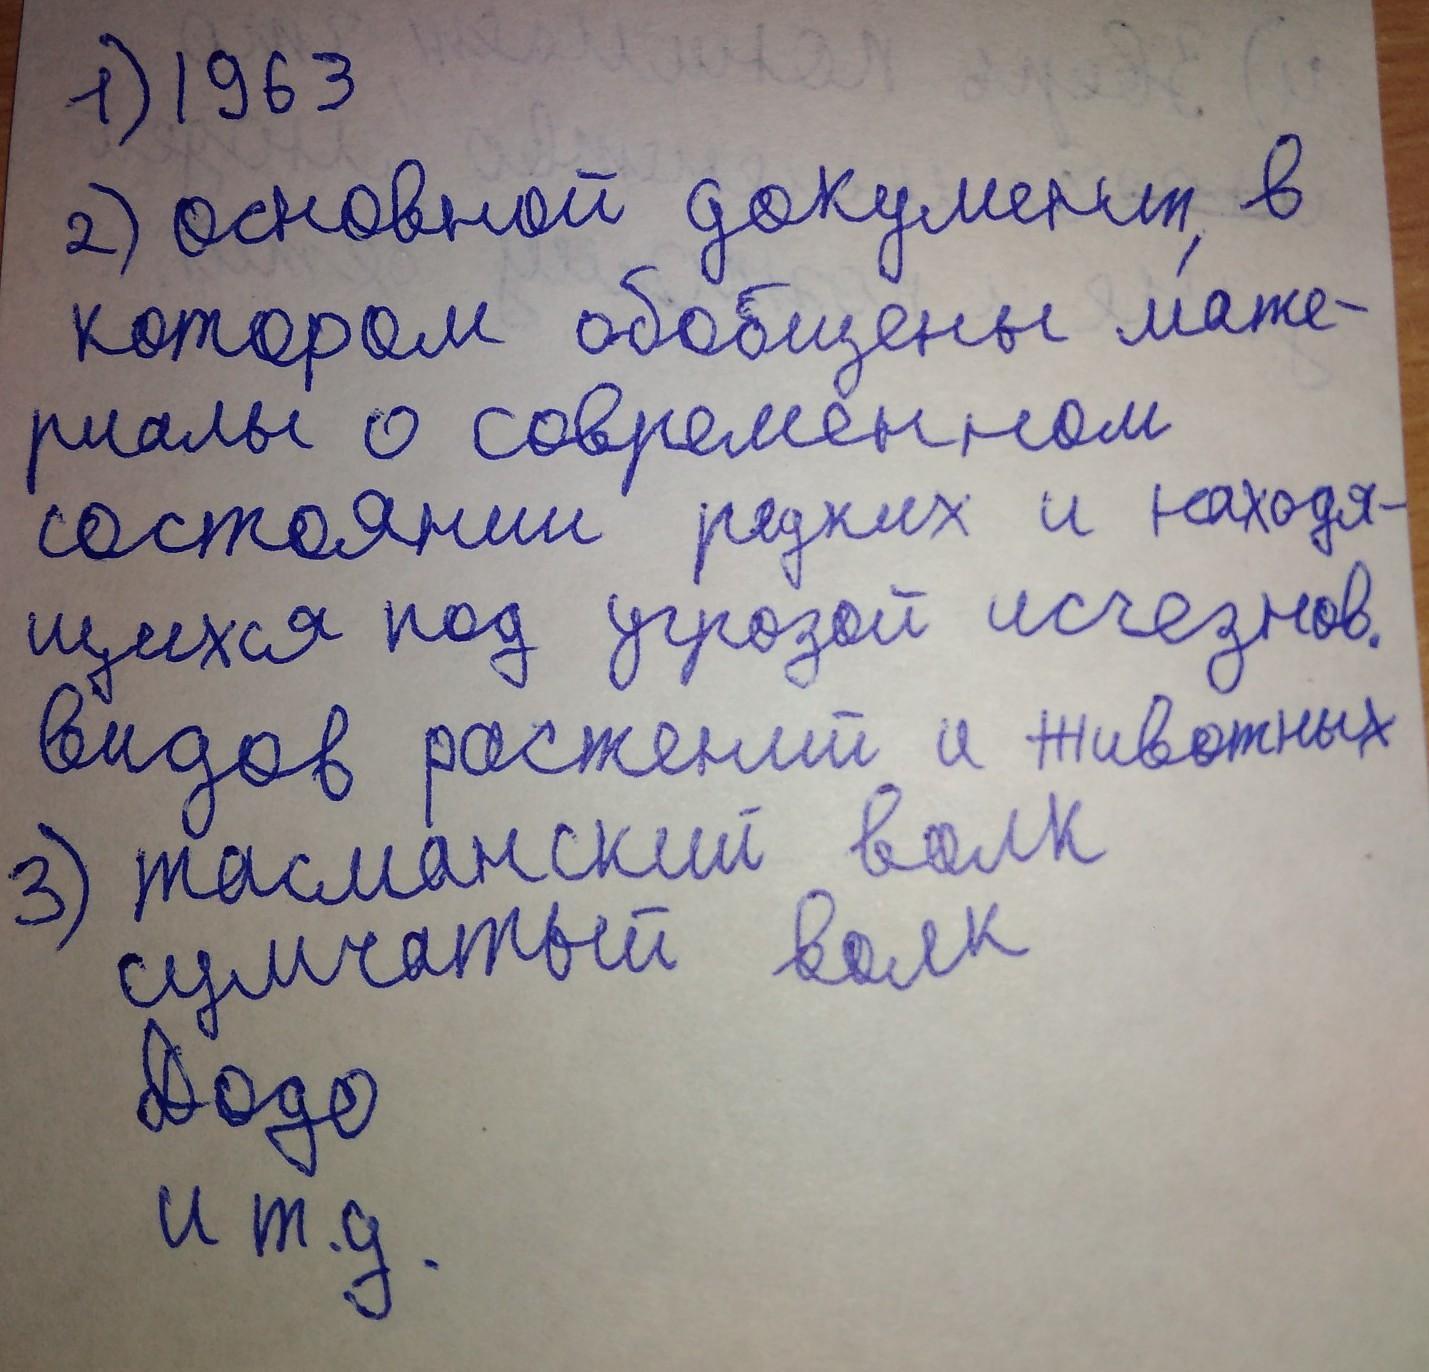 1) 1963
2) основной документ, в
котором обобщены мате-
риалы о современном
состоянии редких и находя-
щихся под угрозой исчезнов.
видов растений и животных
3) тасманский волк
сумчатый волк
Додо
и т.д.